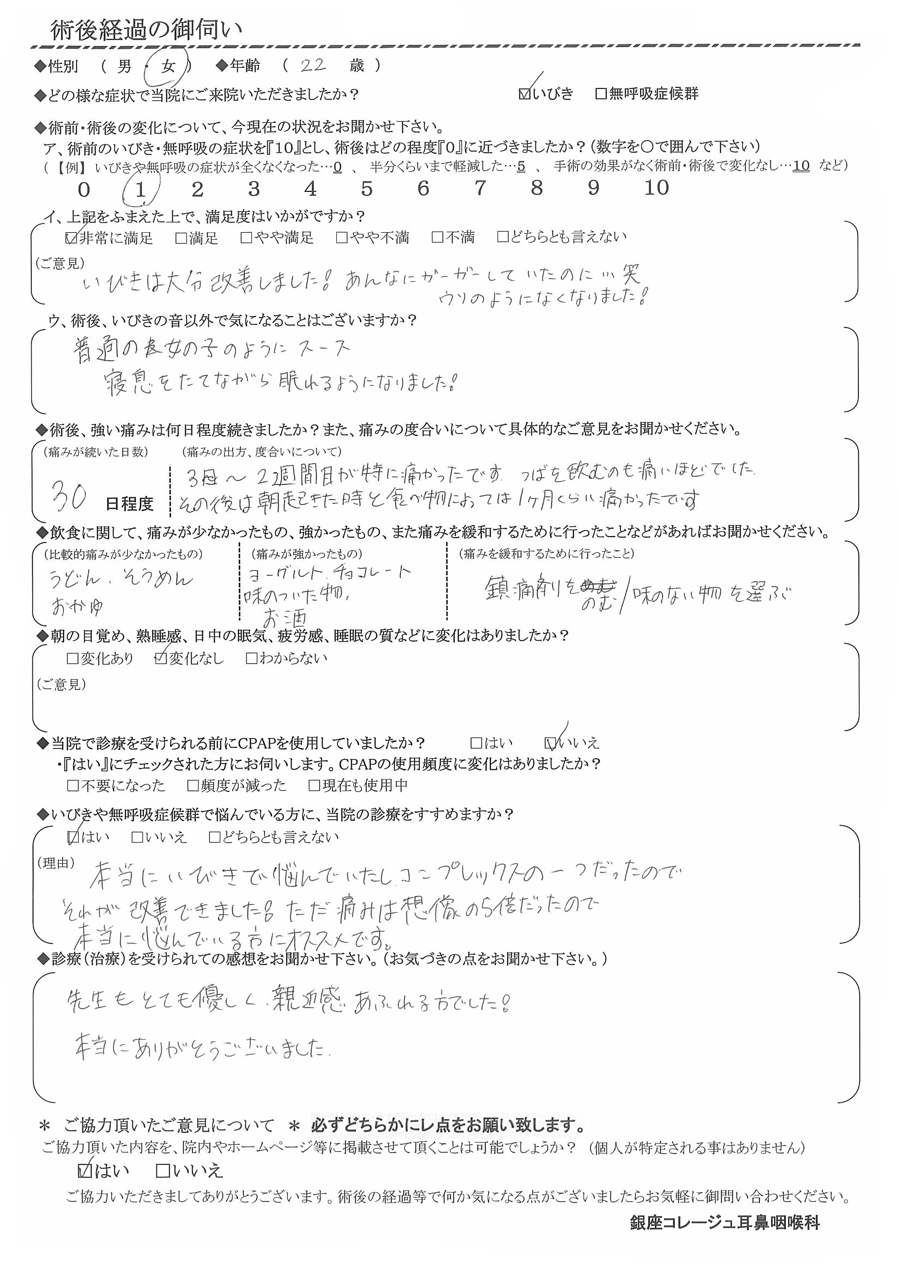 術後経過の御伺い
◆性別 ( 男 ・ 女 ) ◆年齢 ( 22 歳 )
◆どの様な症状で当院にご来院いただきましたか? ☑いびき □無呼吸症候群
◆術前・術後の変化について、今現在の状況をお聞かせ下さい。
ア、術前のいびき・無呼吸の症状を『10』とし、術後はどの程度『0』に近づきましたか?(数字を〇で囲んで下さい)
(【例】いびきや無呼吸の症状が全くなくなった…0 、 半分くらいまで軽減した…5 、 手術の効果がなく術前・術後で変化なし…10 など)
0 1 2 3 4 5 6 7 8 9 10
イ、上記をふまえた上で、満足度はいかがですか?
☑非常に満足 □満足 □やや満足 □やや不満 □不満 □どちらとも言えない
(ご意見)
いびきは大分改善しました! あんなにガーガーしていたのに…笑
ウソのようになくなりました!
ウ、術後、いびきの音以外で気になることはございますか?
普通の女の子のように スース
寝息をたてながら眠れるようになりました!
◆術後、強い痛みは何日程度続きましたか?また、痛みの度合いについて具体的なご意見をお聞かせください。
(痛みが続いた日数) (痛みの出方、度合いについて)
30 日程度
〜2週間目が特に痛かったです つばを飲むのも痛いほどでした.
その後は朝起きた時と食べ物によっては1ヶ月くらい痛かったです
◆飲食に関して、痛みが少なかったもの、強かったもの、また痛みを緩和するために行ったことなどがあればお聞かせください。
(比較的痛みが少なかったもの) (痛みが強かったもの) (痛みを緩和するために行ったこと)
うどん、そうめん
おかゆ
ヨーグルト、チョコレート
味のついた物、
お酒
鎮痛剤をのむ/味のない物を選ぶ
◆朝の目覚め、熟睡感、日中の眠気、疲労感、睡眠の質などに変化はありましたか?
□変化あり ☑変化なし □わからない
(ご意見)
◆当院で診療を受けられる前にCPAPを使用していましたか? □はい ☑いいえ
・『はい』にチェックされた方にお伺いします。CPAPの使用頻度に変化はありましたか?
□不要になった □頻度が減った □現在も使用中
◆いびきや無呼吸症候群で悩んでいる方に、当院の診療をすすめますか?
☑はい □いいえ □どちらとも言えない
(理由)
本当にいびきで悩んでいたし、コンプレックスの一つだったので
それが改善できました! ただ痛みは想像の5倍だったので
本当に悩んでいる方にオススメです。
◆診療(治療)を受けられての感想をお聞かせ下さい。(お気づきの点をお聞かせ下さい。)
先生もとても優しく、親近感あふれる方でした!
本当にありがとうございました.
＊ ご協力頂いたご意見について ＊ 必ずどちらかにレ点をお願い致します。
ご協力頂いた内容を、院内やホームページ等に掲載させて頂くことは可能でしょうか? (個人が特定される事はありません)
☑はい □いいえ
ご協力いただきましてありがとうございます。術後の経過等で何か気になる点がございましたらお気軽に御問い合わせください。
銀座コレージュ耳鼻咽喉科